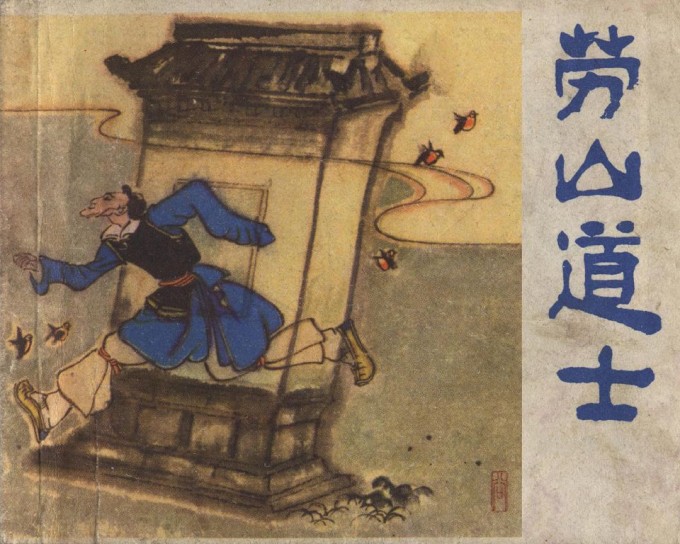 劳山道士